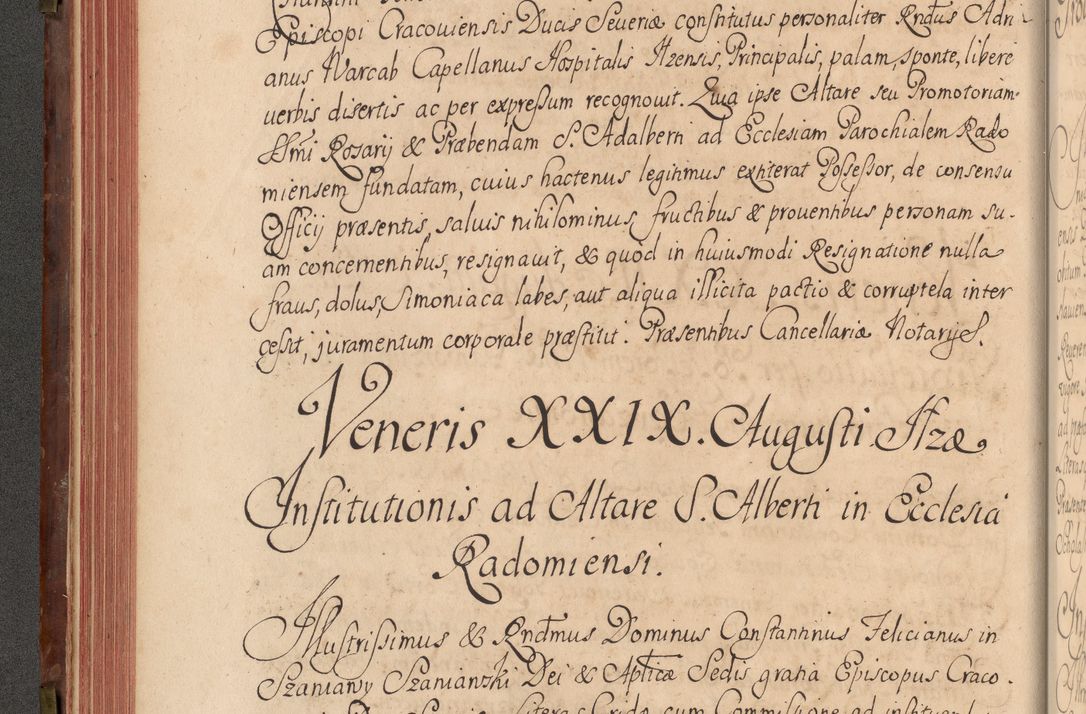 Episcopi Cracouiensis Ducis Seueriæ constitutus personaliter Rndus Adri-
anus Warcab Capellanus Hospitalis Ilzensis, Principalis, palam, sponte, libere
uerbis disertis ac per expreßum recognouit. Quia ipse Altare seu Promotoriam
SSmi Rosarij & Præbendam S. Adalberti ad Ecclesiam Parochialem Rado
miensem fundatam, cuius hactenus legitimus extiterat Poßeßor, de consensu
Officij præsentis, saluis nihilominus fructibus & prouentibus personam su-
am concernentibus, resignauit, & quòd in huiusmodi Resignatione nulla
fraus, dolus, Simoniaca labes, aut aliqua illicita pactio & corruptela inter
ceßit, juramentum corporale præstitit. Præsentibus Cancellariæ Notarijs.
Veneris XXIX. Augusti Ilzæ
Institutionis ad Altare S. Alberti in Ecclesia
Radomiensi.
Illustrißimus & Rndmus Dominus Constantinus Felicianus in
Szaniawy Szaniawski Dei & Aplicæ Sedis gratia Episcopus Craco-